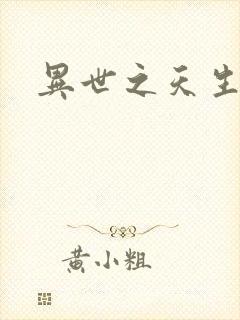 異世之天生
黃小粗